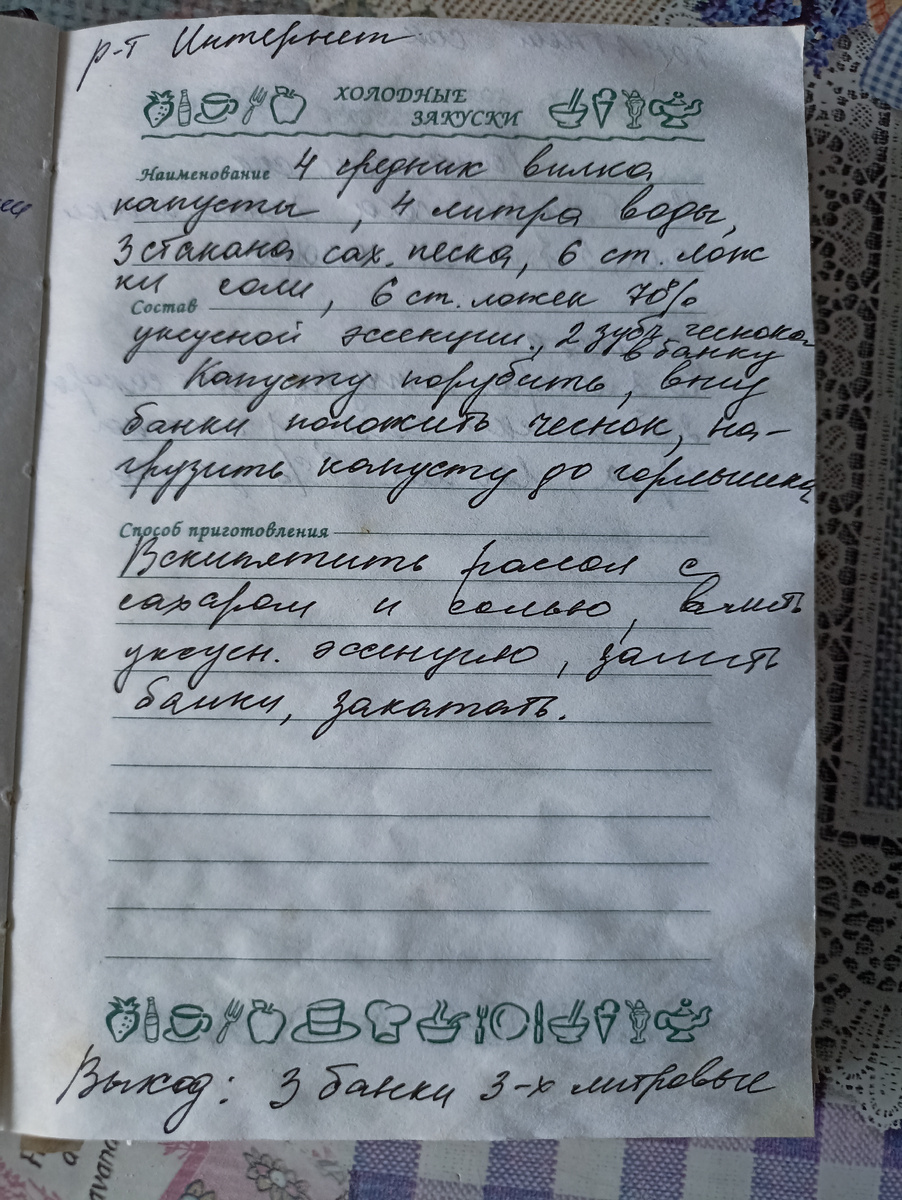 р-т Интернет
ХОЛОДНЫЕ
ЗАКУСКИ
Наименование 4 средних вилка
капусты, 4 литра воды,
3 стакана сах. песка, 6 ст. лож
ки соли, 6 ст. ложек 70%
Состав
уксусной эссенции., 2 зубч. чеснока
в банку
Капусту порубить, вниз
банки положить чеснок, на-
грузить капусту до горлышка
Способ приготовления
Вскипятить рассол с
сахаром и солью, влить
уксусн. эссенцию, залить
банки, закатать.
Выход: 3 банки 3-х литровые